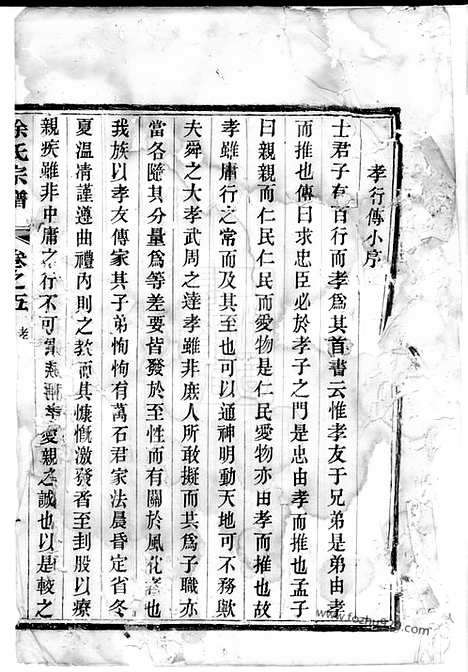 孝行傳小序
士君子有百行而孝爲其首書云惟孝友于兄弟是弟由孝
而推也傳曰求忠臣必於孝子之門是忠由孝而推也孟子
曰親親而仁民仁民而愛物是仁民愛物亦由孝而推也故
孝雖庸行之常而及其至也可以通神明動天地可不務歟
夫舜之大孝武周之達孝雖非庶人所敢擬而其爲子職亦
當各隨其分量爲等差要皆發於至性而有關於風化者也
我族以孝友傳家其子弟恂恂有萬石君家法晨昏定省冬
夏溫凊謹遵曲禮內則之教而其慷慨激發者至刲股以療
親疾雖非中庸之行不可愛親之誠也以是較之
徐氏宗譜
卷之五
孝
www.fozhu920.com